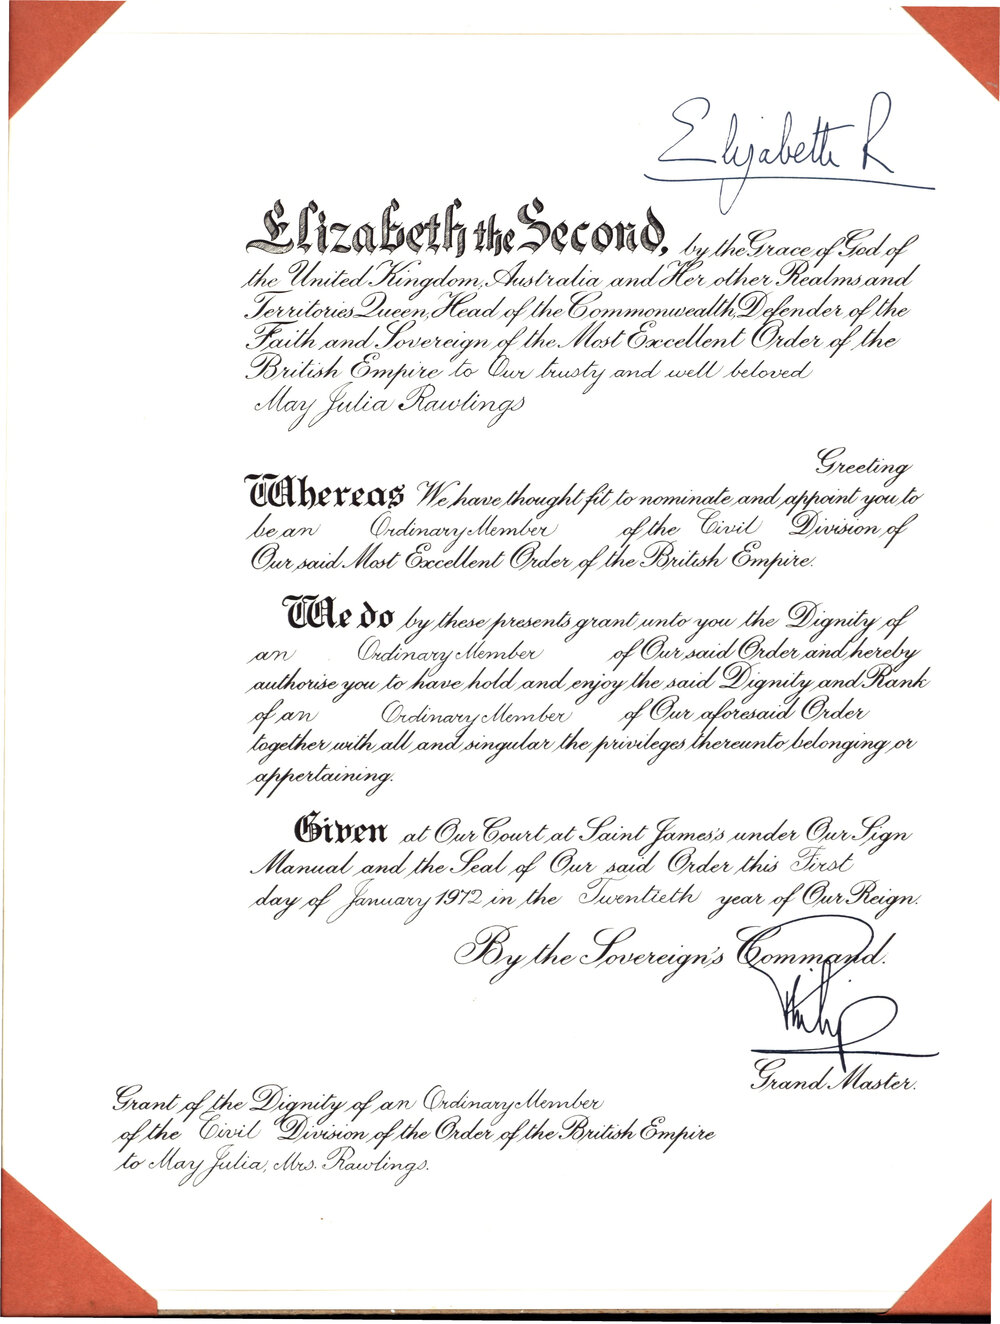 Elizabeth R
Elizabeth the Second, by the Grace of God of
the United Kingdom, Australia and Her other Realms and
Territories Queen, Head of the Commonwealth, Defender of the
Faith and Sovereign of the Most Excellent Order of the
British Empire to Our trusty and well beloved
May Julia Rawlings
Greeting
Whereas We have thought fit to nominate and appoint you to
be an Ordinary Member of the Civil Division of
Our said Most Excellent Order of the British Empire.
We do by these presents grant unto you the Dignity of
an Ordinary Member of Our said Order and hereby
authorise you to have hold and enjoy the said Dignity and Rank
of an Ordinary Member of Our aforesaid Order
together with all and singular the privileges thereunto belonging or
appertaining.
Given at Our Court at Saint James's under Our Sign
Manual and the Seal of Our said Order this First
day of January 1972 in the Twentieth year of Our Reign.
By the Sovereign's Command.
Philip
Grand Master.
Grant of the Dignity of an Ordinary Member
of the Civil Division of the Order of the British Empire
to May Julia, Mrs. Rawlings.